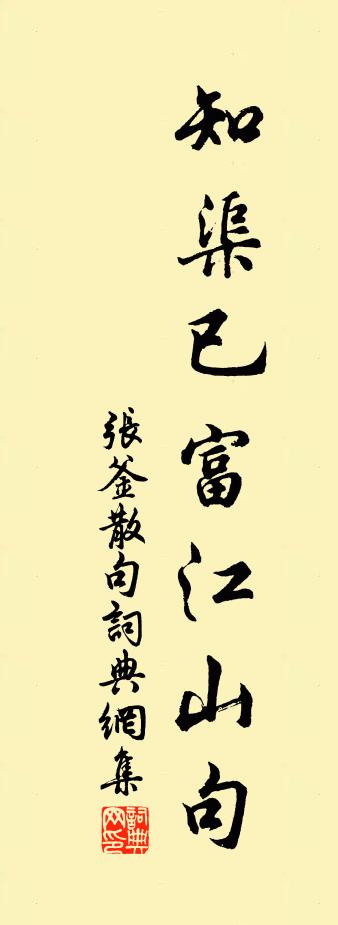 知渠已富江山句
張釜散句詞典網集
詞典网印